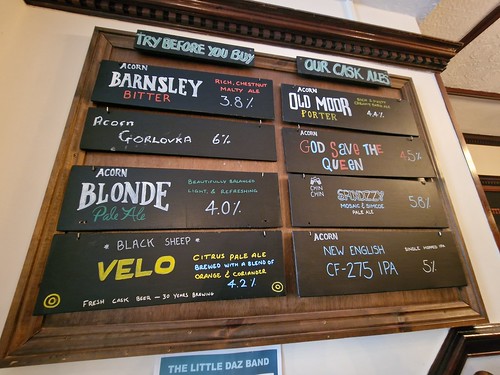 TRY BEFORE YOU BUY
ACORN
BARNSLEY
BITTER
RICH, CHESTNUT
MALTY ALE
3.8%
ACORN
GORLOVKA 6%
ACORN
BLONDE
Pale Ale
BEAUTIFULLY BALANCED
LIGHT & REFRESHING
4.0%
* BLACK SHEEP *
VELO
CITRUS PALE ALE
BREWED WITH A BLEND OF
ORANGE & CORIANDER
4.2%
FRESH CASK BEER - 30 YEARS BREWING
OUR CASK ALES
ACORN
OLD MOOR
PORTER
4.4%
ACORN
GOD SAVE THE
QUEEN
4.5%
CHIN
CHIN
MOSAIC & SIMCOE
PALE ALE
5.8%
ACORN
NEW ENGLISH
CF-275 IPA
SINGLE HOPPED IPA
5%
THE LITTLE DAZ BAND